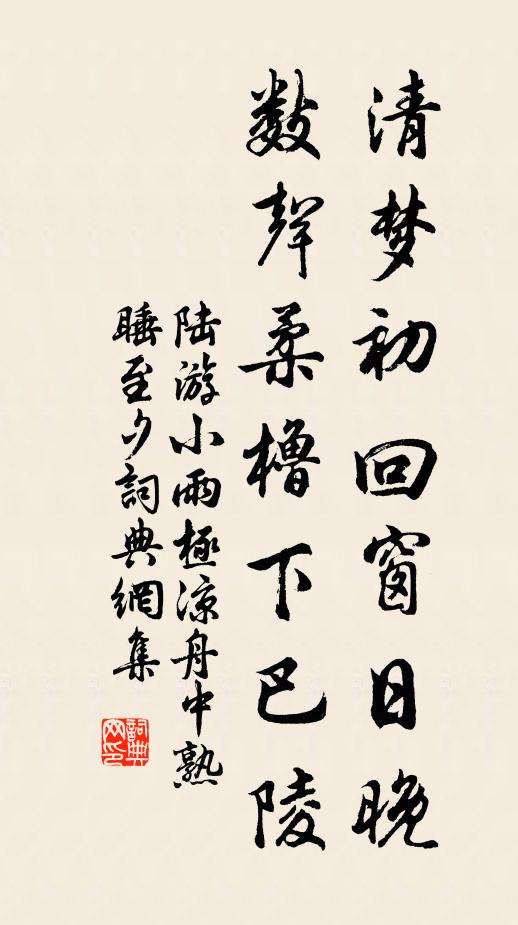 清梦初回窗日晚
数聲柔櫓下巴陵
陆游小雨極凉舟中熟
睡至夕詞典網集
詞典网印